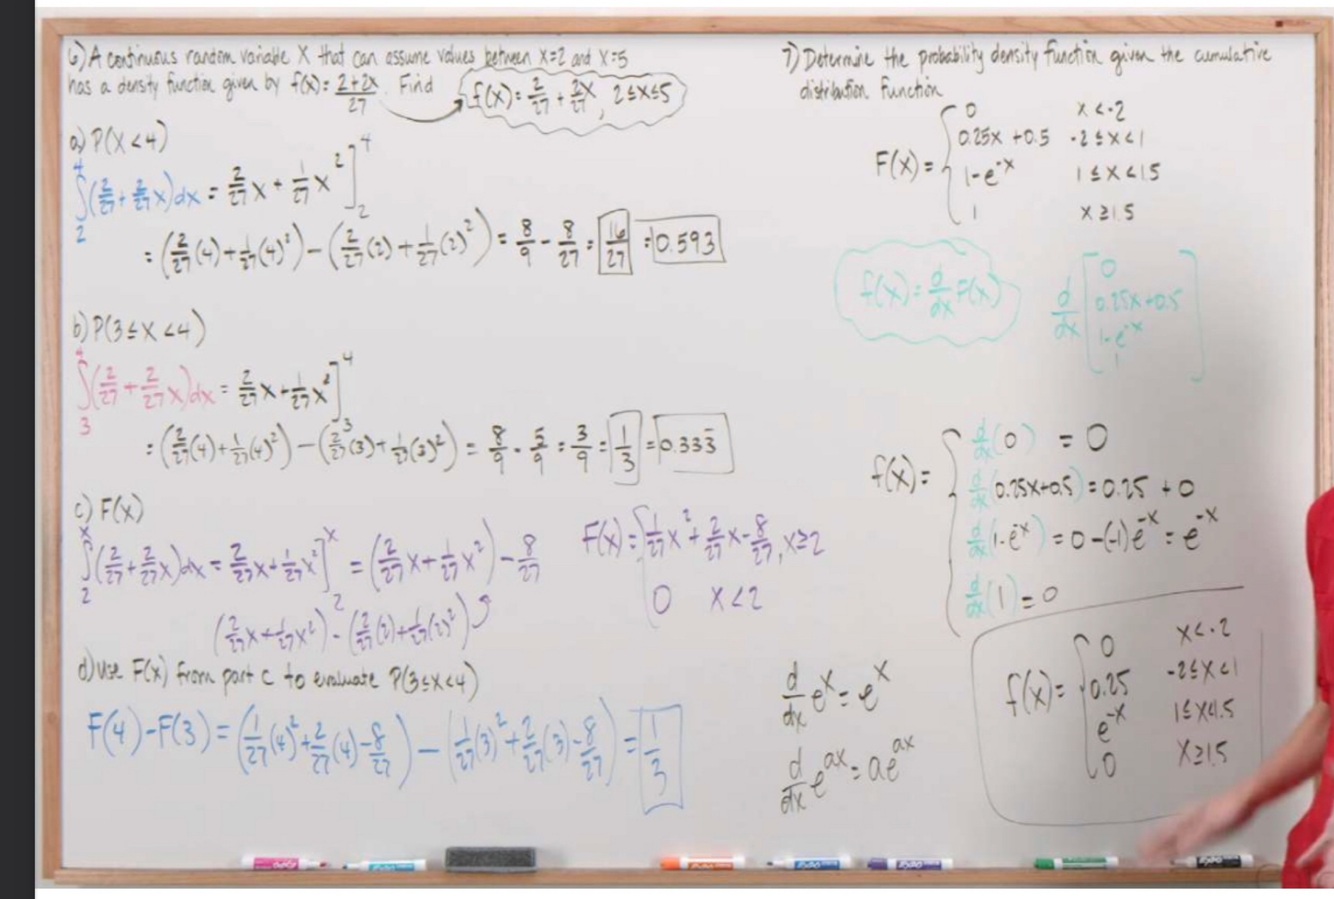 6) A continuous random variable X that can assume values between x=2 and x=5
has a density function given by f(x) = (2+2x)/27. Find
f(x) = 2/27 + 2x/27, 2≤x≤5
a) P(X<4)
∫₂⁴(2/27 + 2/27 x)dx = 2/27 x + 1/27 x² ]₂⁴
= (2/27(4) + 1/27(4)²) - (2/27(2) + 1/27(2)²) = 8/9 - 8/27 = 16/27 = 0.593
b) P(3≤X<4)
∫₃⁴(2/27 + 2/27 x)dx = 2/27 x + 1/27 x² ]₃⁴
= (2/27(4) + 1/27(4)²) - (2/27(3) + 1/27(3)²) = 8/9 - 5/9 = 3/9 = 1/3 = 0.333̄
c) F(x)
∫₂ˣ(2/27 + 2/27 x)dx = 2/27 x + 1/27 x² ]₂ˣ = (2/27 x + 1/27 x²) - 8/27
(2/27 x + 1/27 x²) - (2/27(2) + 1/27(2)²)
F(x) = { 1/27 x² + 2/27 x - 8/27, x≥2
0 x<2
d) Use F(x) from part c to evaluate P(3≤X<4)
F(4) - F(3) = (1/27(4)² + 2/27(4) - 8/27) - (1/27(3)² + 2/27(3) - 8/27) = 1/3
7) Determine the probability density function given the cumulative
distribution function
F(x) = {
0 x<-2
0.25x + 0.5 -2≤x<1
1-e^-x 1≤x<1.5
1 x≥1.5
f(x) = d/dx F(x)
d/dx [
0
0.25x+0.5
1-e^-x
1
]
f(x) = {
d/dx(0) = 0
d/dx(0.25x+0.5) = 0.25 + 0
d/dx(1-e^-x) = 0-(-1)e^-x = e^-x
d/dx(1) = 0
f(x) = {
0 x<-2
0.25 -2≤x<1
e^-x 1≤x<1.5
0 x≥1.5
d/dx e^x = e^x
d/dx e^ax = ae^ax
EXPO